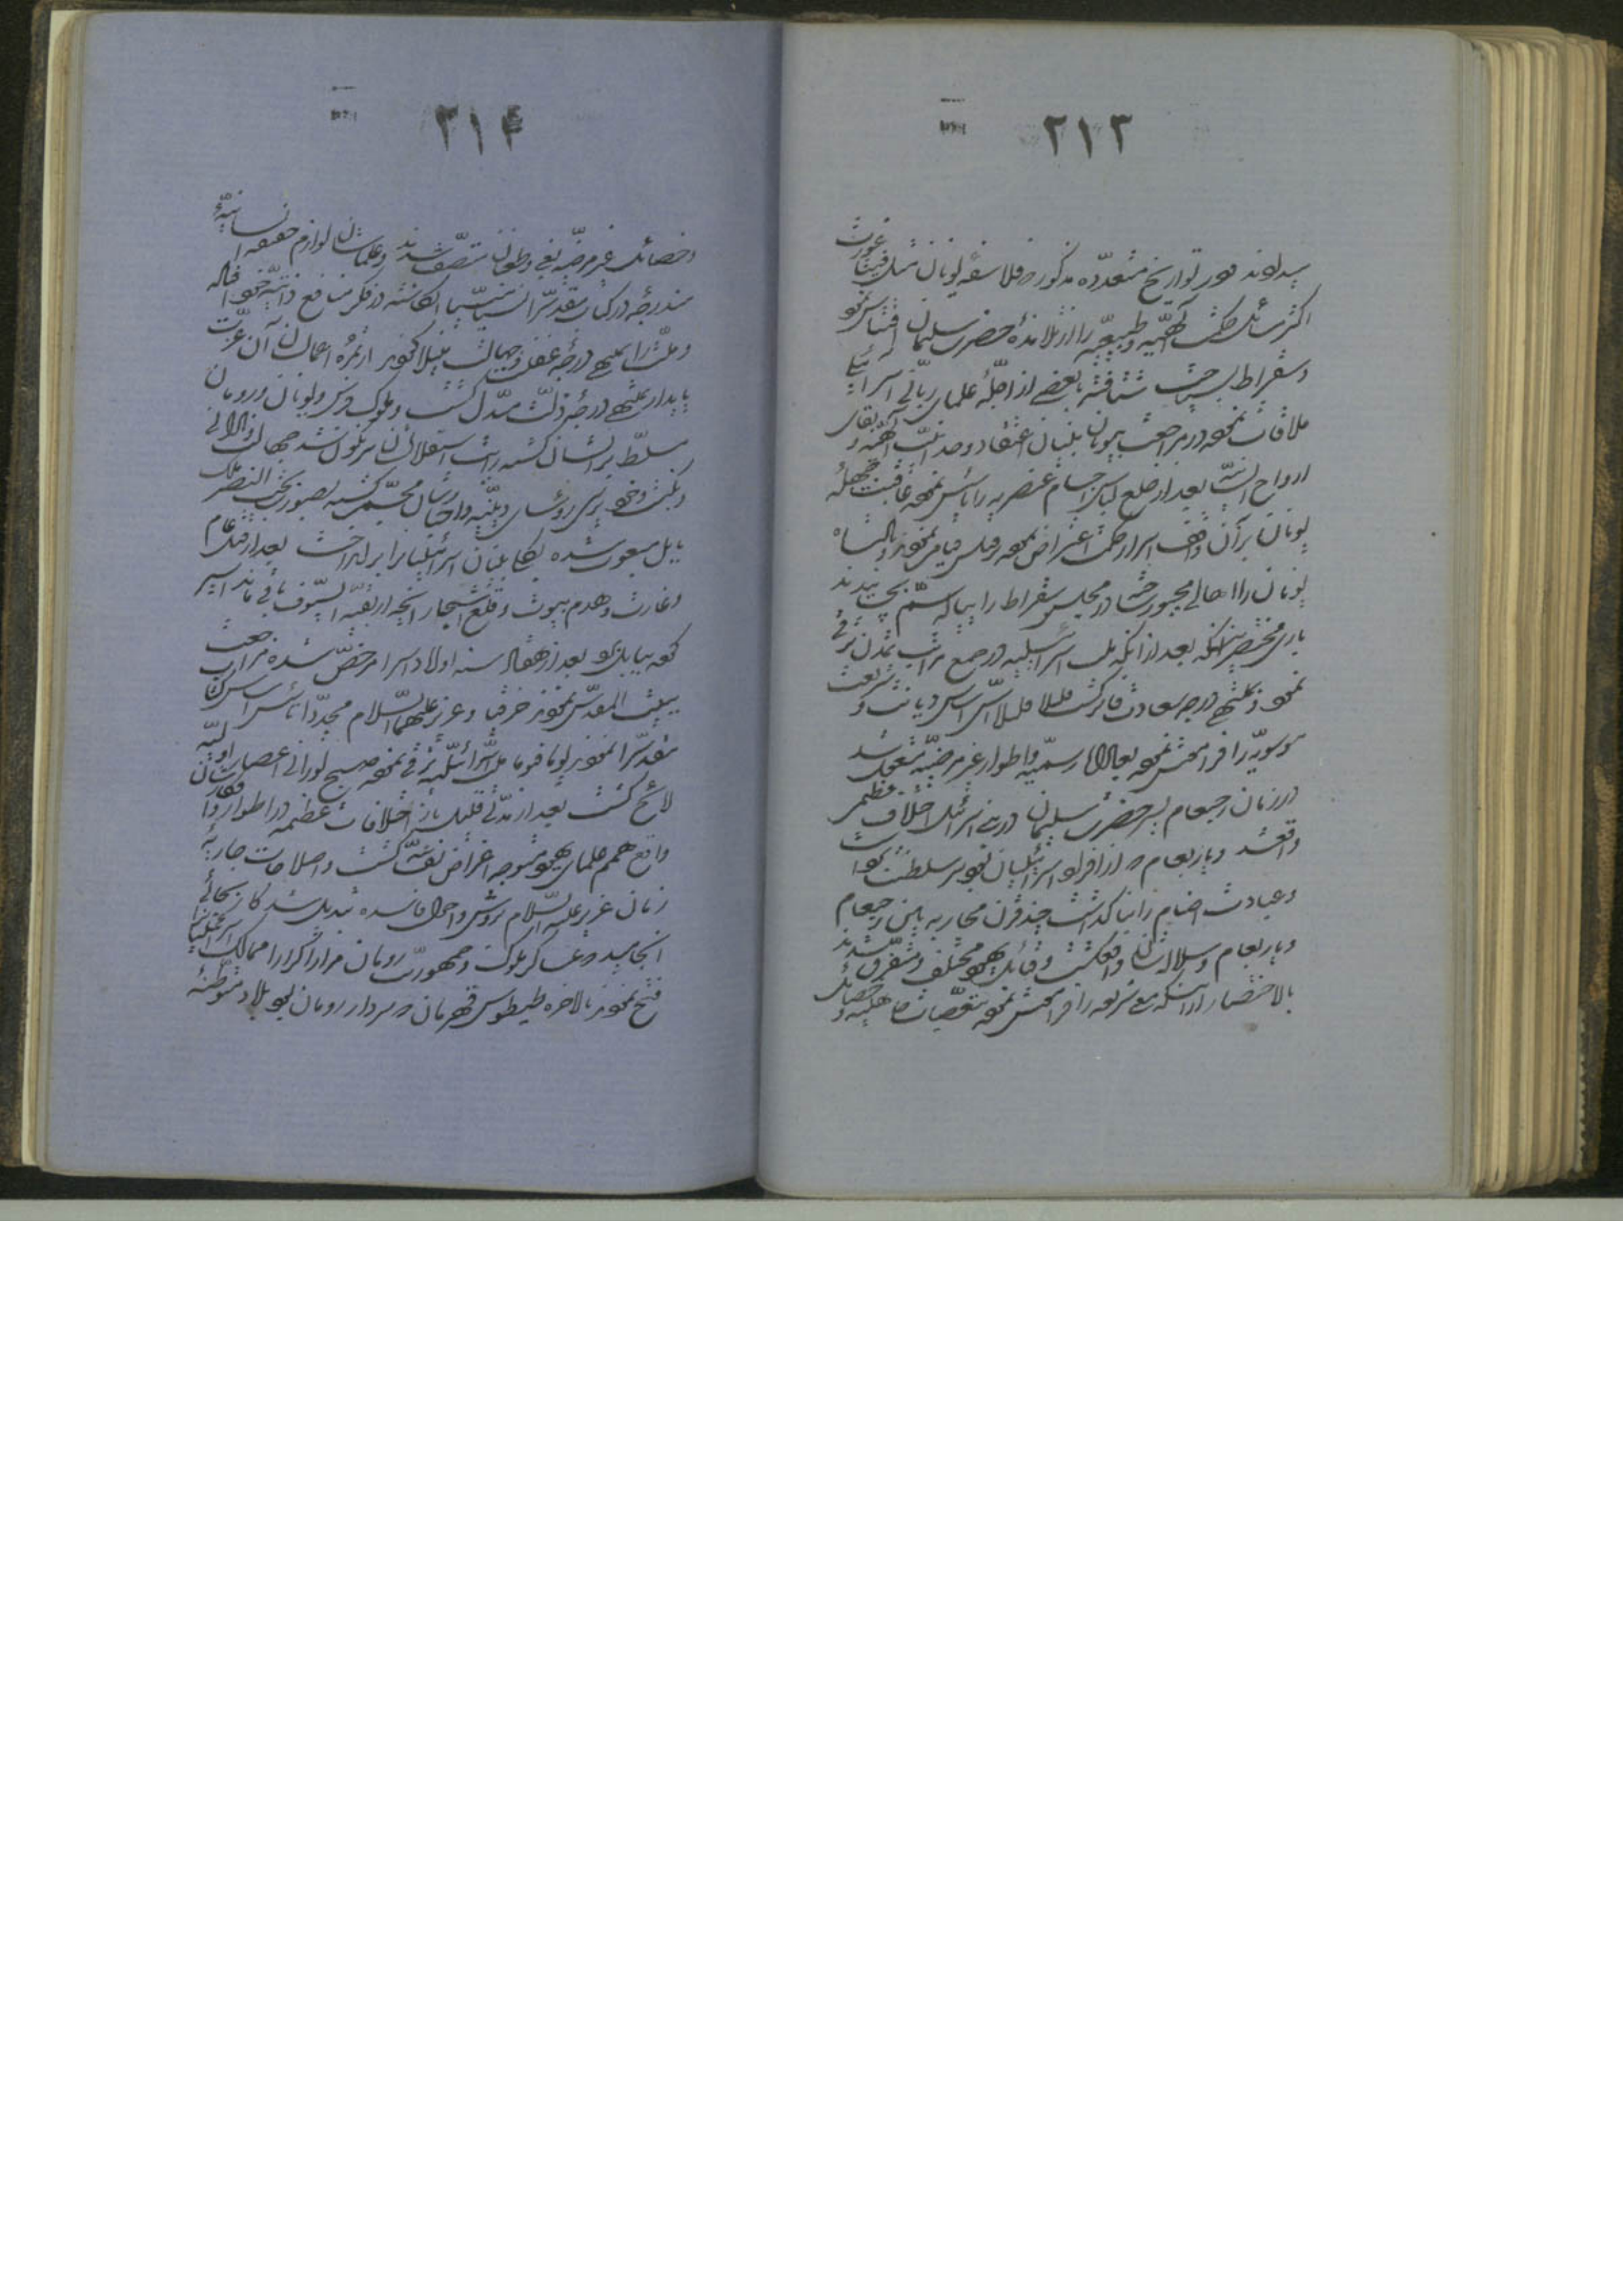 ۲۱۳
میداوند و در تواریخ متعدّده مذکور که فلاسفهٔ یونان مثل فیثاغورث
اکثر مسائل حکمت الهیّه و طبیعیّه را از تلامذهٔ حضرت سلیمان اقتباس نمود
و سقراط بسیاحت شتافته با بعضی از اجلّهٔ علمای ربّانی اسرائیل
ملاقات نموده در مراجعت بیونان بنیان اعتقاد وحدانیّت الهیّه و بقای
ارواح انسانیّه بعد از خلع لباس اجسام عنصریه را تأسیس نموده عاقبت جهلهٔ
یونان بر آن واقف اسرار حکمت اعتراض نموده و بر قتلش قیام نمودند و پادشاه
یونان را اهالی مجبور داشته در مجلس سقراط را پیاله سمّ چشانیدند
باری مختصر اینکه بعد از آنکه ملت اسرائیلیه در جمیع مراتب تمدن ترقی
نموده و بمنتهی درجه سعادت فائز گشت قلیلا قلیلا اسّ اساس دیانت و شریعت
موسویّه را فراموش نموده بعادات رسمیّه و اطوار غیر مرضیّه مشغول شد
در زمان رحبعام پسر حضرت سلیمان در بنی اسرائیل اختلاف عظیمی
واقع شد و یاربعام که از افراد اسرائیلیان بود بر سلطنت برخاست
و عبادت اصنام را بنا گذاشت چند قرن محاربه بین رحبعام
و یاربعام و سلاله‌شان واقع گشت و قبائل یهود مختلف و متفرّق شدند
بالاختصار از اینکه معنی شریعه را فراموش نموده بتعصّبات جاهلیّه و خصائل
۲۱۴
و خصائل غیر مرضیّه بغی و طغیان متّصف شدند و علمایشان لوازم حقیقه انسانیّهٔ
مندرجه در کتاب مقدّس را نسیاً منسیّاً انگاشته در فکر منافع ذاتیّهٔ خود افتاده
و ملّت را بمنتهی درجهٔ غفلت و جهالت مبتلا نمودند از ثمرهٔ اعمالشان آن عزّت
پایدار بمنتهی درجهٔ ذلّت مبدّل گشت و ملوک فرس و یونان و رومان
مسلّط بر ایشان گشته رایت استقلالشان سرنگون شد جهالت و نادانی
و نکبت و خودپرستی رؤسای دینیّه و احبارشان مجسّم گشته بصورت بخت‌النصر ملک
بابل مبعوث شده بکلّی بنیان اسرائیلیان را برانداخت بعد از قتل عام
و غارت و هدم بیوت و قلع اشجار آنچه از بقیّة السیوف باقی ماند اسیر
نموده ببابل برد بعد از هفتاد سنه اولاد اسرا مرخّص شده مراجعت
ببیت المقدّس نمودند حزقیا و عزیر علیهما السّلام مجدّداً تأسیس اساس کتاب
مقدّس را نمودند یوماً فیوماً ملّت اسرائیلیّه ترقّی نموده صبح نورانی اعصار اوّلیّه
لائح گشت بعد از مدّتی قلیله باز اختلافات عظیمه در اطوار و افکارشان
واقع همم علمای یهود متوجه اغراض نفسیّه گشت و اصلاحات جاریهٔ
زمان عزیر علیه السّلام بروش و احوال فاسده تبدیل شد کار بجائی
انجامید که عساکر ملوک و جمهوریّت رومان مراراً و کراراً ممالک اسرائیلیان را
فتح نمودند بالاخره طیطوس قهرمان که سردار رومان بود بلاد متوطّنهٔ